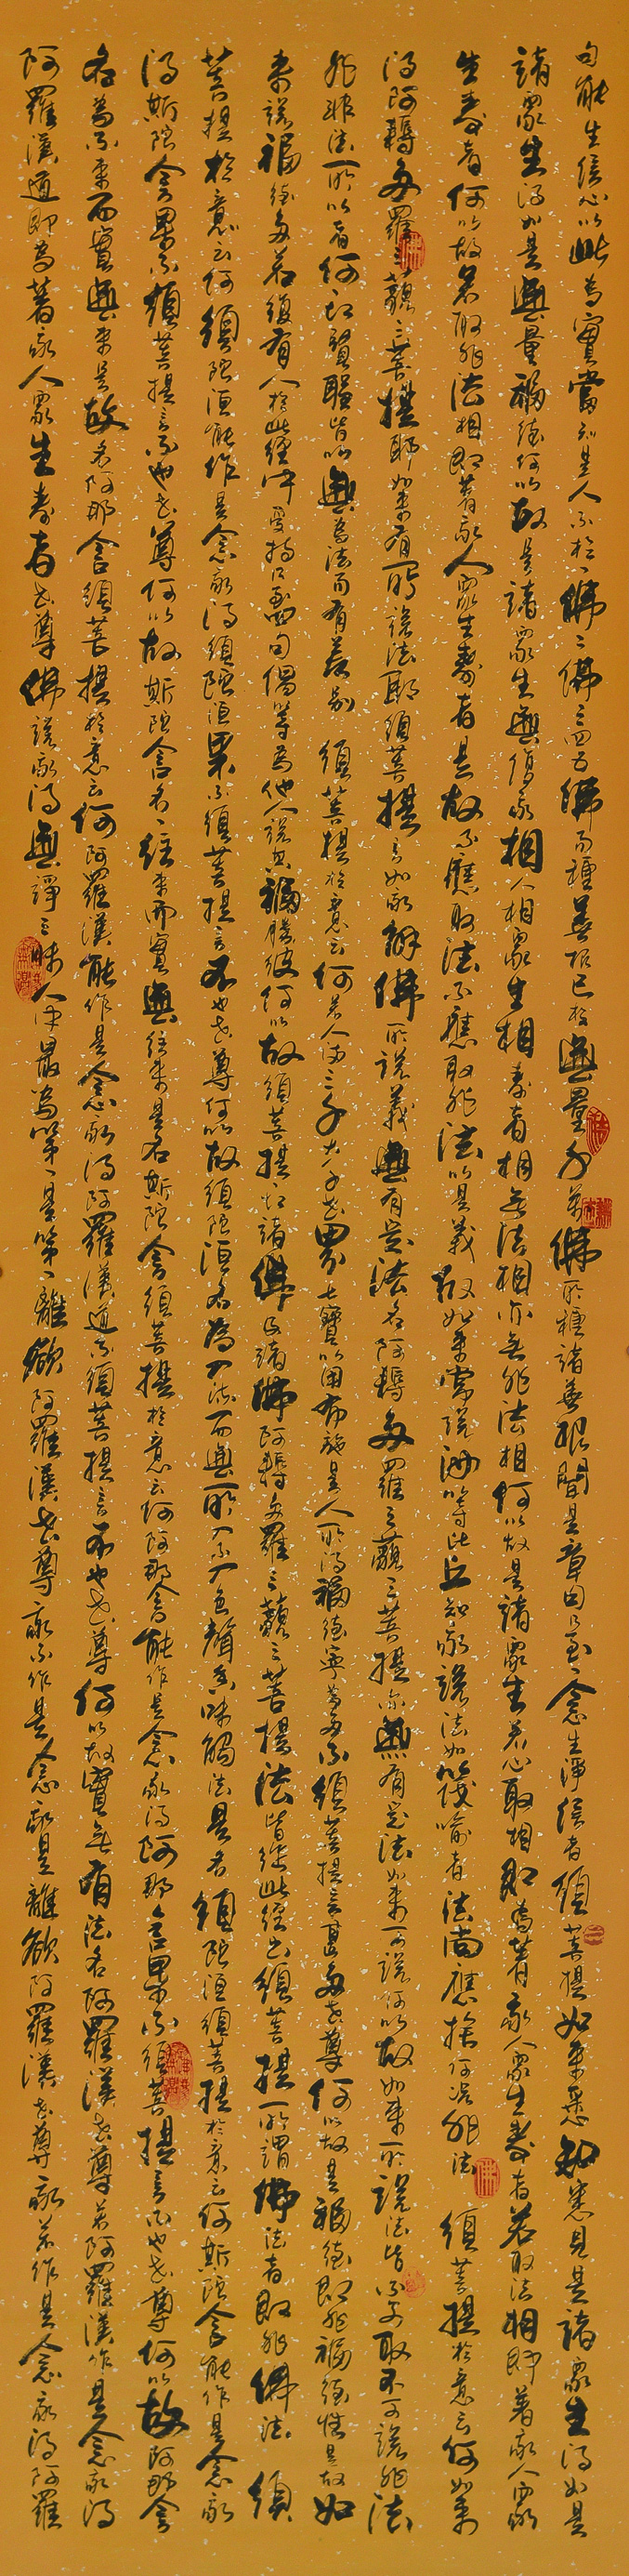 句能生信心以此為實當知是人不於一佛二佛三四五佛而種善根已於無量千萬佛所種諸善根聞是章句乃至一念生淨信者須菩提如來悉知悉見是諸眾生得如是
諸眾生得如是無量福德何以故是諸眾生無復我相人相眾生相壽者相無法相亦無非法相何以故是諸眾生若心取相即為著我人眾生壽者若取法相即著我人眾
生壽者何以故若取非法相即著我人眾生壽者是故不應取法不應取非法以是義故如來常說汝等比丘知我說法如筏喻者法尚應捨何況非法 須菩提於意云何如來
得阿耨多羅三藐三菩提耶如來有所說法耶須菩提言如我解佛所說義無有定法名阿耨多羅三藐三菩提亦無有定法如來可說何以故如來所說法皆不可取不可說非法
非非法所以者何一切賢聖皆以無為法而有差別 須菩提於意云何若人滿三千大千世界七寶以用布施是人所得福德寧為多不須菩提言甚多世尊何以故是福德即非福德性是故如
來說福德多若復有人於此經中受持乃至四句偈等為他人說其福勝彼何以故須菩提一切諸佛及諸佛阿耨多羅三藐三菩提法皆從此經出須菩提所謂佛法者即非佛法 須
菩提於意云何須陀洹能作是念我得須陀洹果不須菩提言不也世尊何以故須陀洹名為入流而無所入不入色聲香味觸法是名須陀洹須菩提於意云何斯陀含能作是念我
得斯陀含果不須菩提言不也世尊何以故斯陀含名一往來而實無往來是名斯陀含須菩提於意云何阿那含能作是念我得阿那含果不須菩提言不也世尊何以故阿那含
名為不來而實無來是故名阿那含須菩提於意云何阿羅漢能作是念我得阿羅漢道不須菩提言不也世尊何以故實無有法名阿羅漢世尊若阿羅漢作是念我得
阿羅漢道即為著我人眾生壽者世尊佛說我得無諍三昧人中最為第一是第一離欲阿羅漢世尊我不作是念我是離欲阿羅漢世尊我若作是念我得阿羅